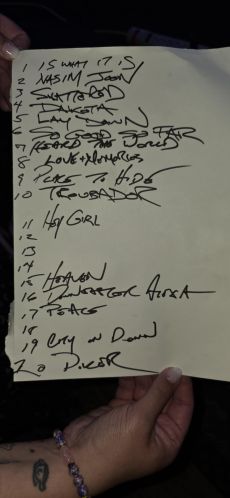 1 IS WHAT IT IS
2 NASIM JOON
3 SHATTERED
4 DAKOTA
5 LAY DOWN
6 SO GOOD SO FAR
7 HEARD THE WORLD
8 LOVE+MEMORIES
9 PLACE TO HIDE
10 TROUBADOR
11 HEY GIRL
12
13
14
15 HEAVEN
16
17 PEACE
18
19 CITY ON DOWN
20